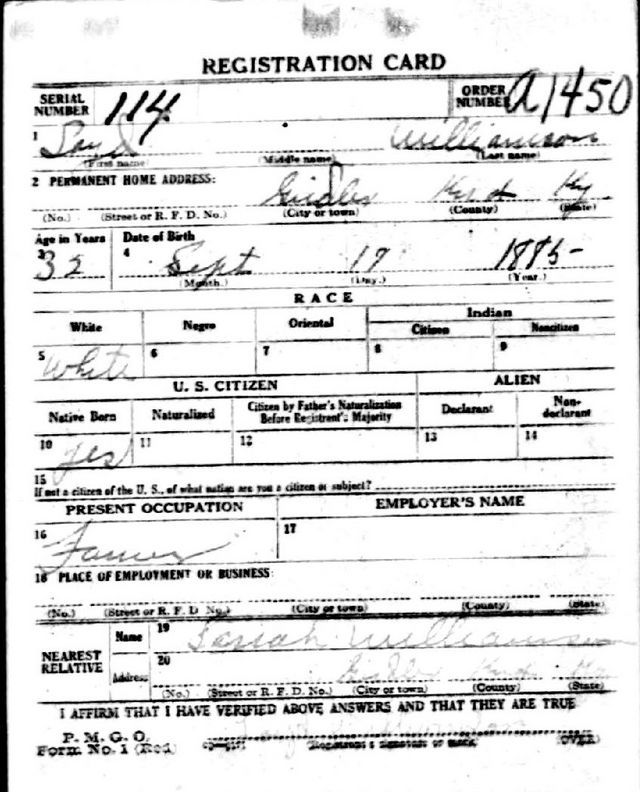 REGISTRATION CARD
SERIAL NUMBER 114 ORDER NUMBER A1450
1 Williamson
(First name) (Middle name) (Last name)
2 PERMANENT HOME ADDRESS: Ky
(No.) (Street or R. F. D. No.) (City or town) (County) (State)
Age in Years Date of Birth
3 32 4 Sept 17 1885
(Month.) (Day.) (Year.)
RACE
White Negro Oriental Indian
Citizen Noncitizen
5 White 6 7 8 9
U. S. CITIZEN ALIEN
Native Born Naturalized Citizen by Father's Naturalization Before Registrant's Majority Declarant Non-declarant
10 yes 11 12 13 14
15
If not a citizen of the U. S., of what nation are you a citizen or subject?
PRESENT OCCUPATION EMPLOYER'S NAME
16 Farmer 17
18 PLACE OF EMPLOYMENT OR BUSINESS:
(No.) (Street or R. F. D. No.) (City or town) (County) (State)
NEAREST RELATIVE Name 19 Sariah Williamson
Address 20
(No.) (Street or R. F. D. No.) (City or town) (County) (State)
I AFFIRM THAT I HAVE VERIFIED ABOVE ANSWERS AND THAT THEY ARE TRUE
P. M. G. O.
Form No. 1 (Red) (Registrant's signature or mark) (OVER)